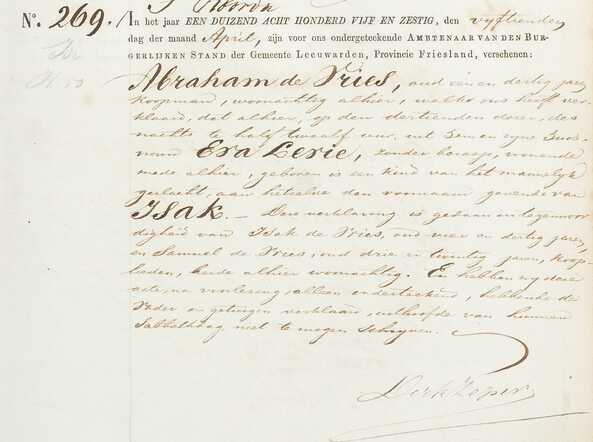 No. 269. In het jaar EEN DUIZEND ACHT HONDERD VIJF EN ZESTIG, den vyftienden
dag der maand April, zijn voor ons ondergeteekende AMBTENAAR VAN DEN BUR-
GERLIJKEN STAND der Gemeente Leeuwarden, Provincie Friesland, verschenen:
Abraham de Vries, oud een en dertig jaren,
koopman, woonachtig alhier, welke ons heeft ver-
klaard, dat alhier, op den dertienden dezer, des
nachts te half twaalf uur, uit hem en zyne huis-
vrouw Eva Levie, zonder beroep, wonende
mede alhier, geboren is een kind van het mannelyk
geslacht, aan hetwelk den voornaam gevende van
Isak. — Deze verklaring is gedaan in tegenwoor-
digheid van Isak de Vries, oud vier en dertig jaren,
en Samuel de Vries, oud drie en twintig jaren, koop-
lieden, beide alhier woonachtig. En hebben wy deze
acte, na voorlezing, alleen onderteekend, hebbende de
Vader en getuigen verklaard, uit hoofde van hunnen
Sabbathdag niet te mogen schryven.